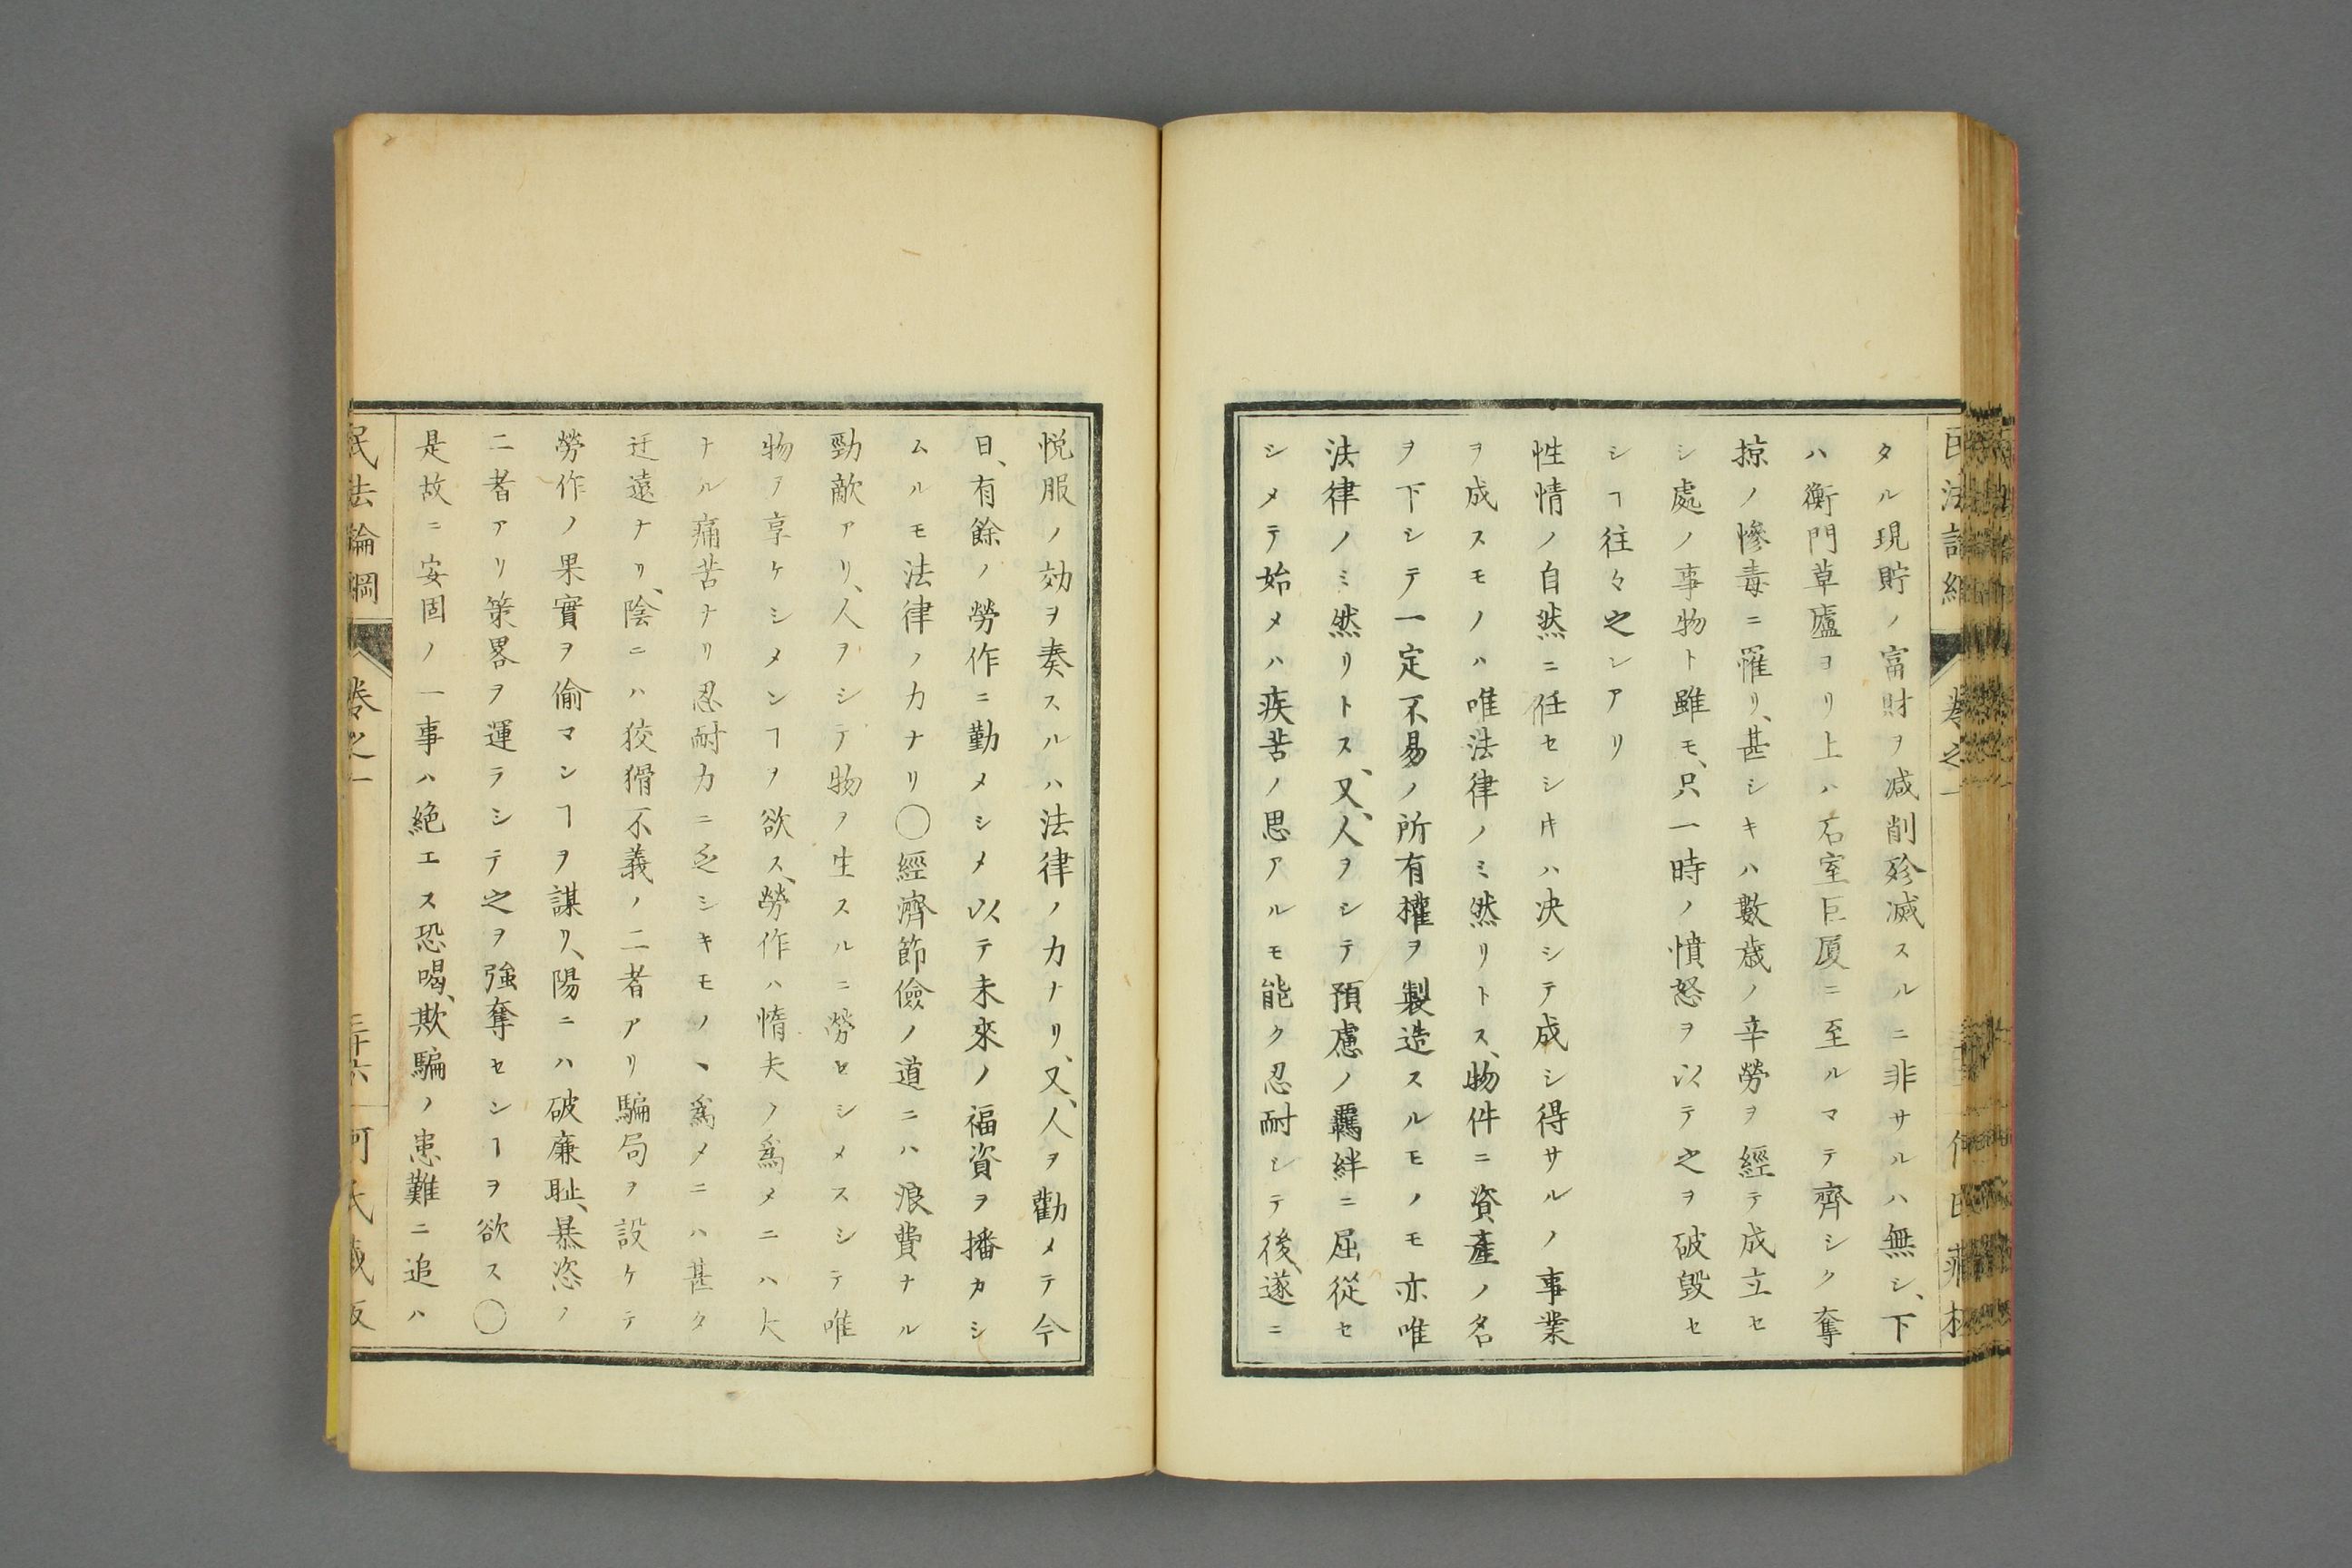 タル現貯ノ富財ヲ減削殄滅スルニ非サルハ無シ、下
ハ衡門草廬ヨリ上ハ石室巨厦ニ至ルマテ齊シク奪
掠ノ慘毒ニ罹リ、甚シキハ數歳ノ辛勞ヲ經テ成立セ
シ處ノ事物ト雖モ、只一時ノ憤怒ヲ以テ之ヲ破毀セ
シヿ往々之レアリ
性情ノ自然ニ任セシ𪜈ハ决シテ成シ得サルノ事業
ヲ成スモノハ唯法律ノミ然リトス、物件ニ資產ノ名
ヲ下シテ一定不易ノ所有權ヲ製造スルモノモ亦唯
法律ノミ然リトス、又、人ヲシテ預慮ノ羈絆ニ屈從セ
シメテ始メハ疾苦ノ思アルモ能ク忍耐シテ後、遂ニ
悦服ノ効ヲ奏スルハ法律ノ力ナリ、又、人ヲ勸メテ今
日、有餘ノ勞作ニ勤メシメ以テ未來ノ福資ヲ播カシ
ムルモ法律ノ力ナリ〇經濟節儉ノ道ニハ浪費ナル
勁敵アリ、人ヲシテ物ヲ生スルニ勞セシメスシテ唯
物ヲ享ケシメンヿヲ欲ス、勞作ハ惰夫ノ爲メニハ大
ナル痛苦ナリ忍耐力ニ乏シキモノヽ爲メニハ甚タ
迂遠ナリ、陰ニハ狡猾不義ノ二者アリ騙局ヲ設ケテ
勞作ノ果實ヲ偷マンヿヲ謀リ、陽ニハ破廉耻、暴恣ノ
二者アリ策畧ヲ運ラシテ之ヲ強奪センヿヲ欲ス〇
是故ニ安固ノ一事ハ絶エス恐喝、欺騙ノ患難ニ追ハ
民法論綱 卷之一 三十六 何氏藏版